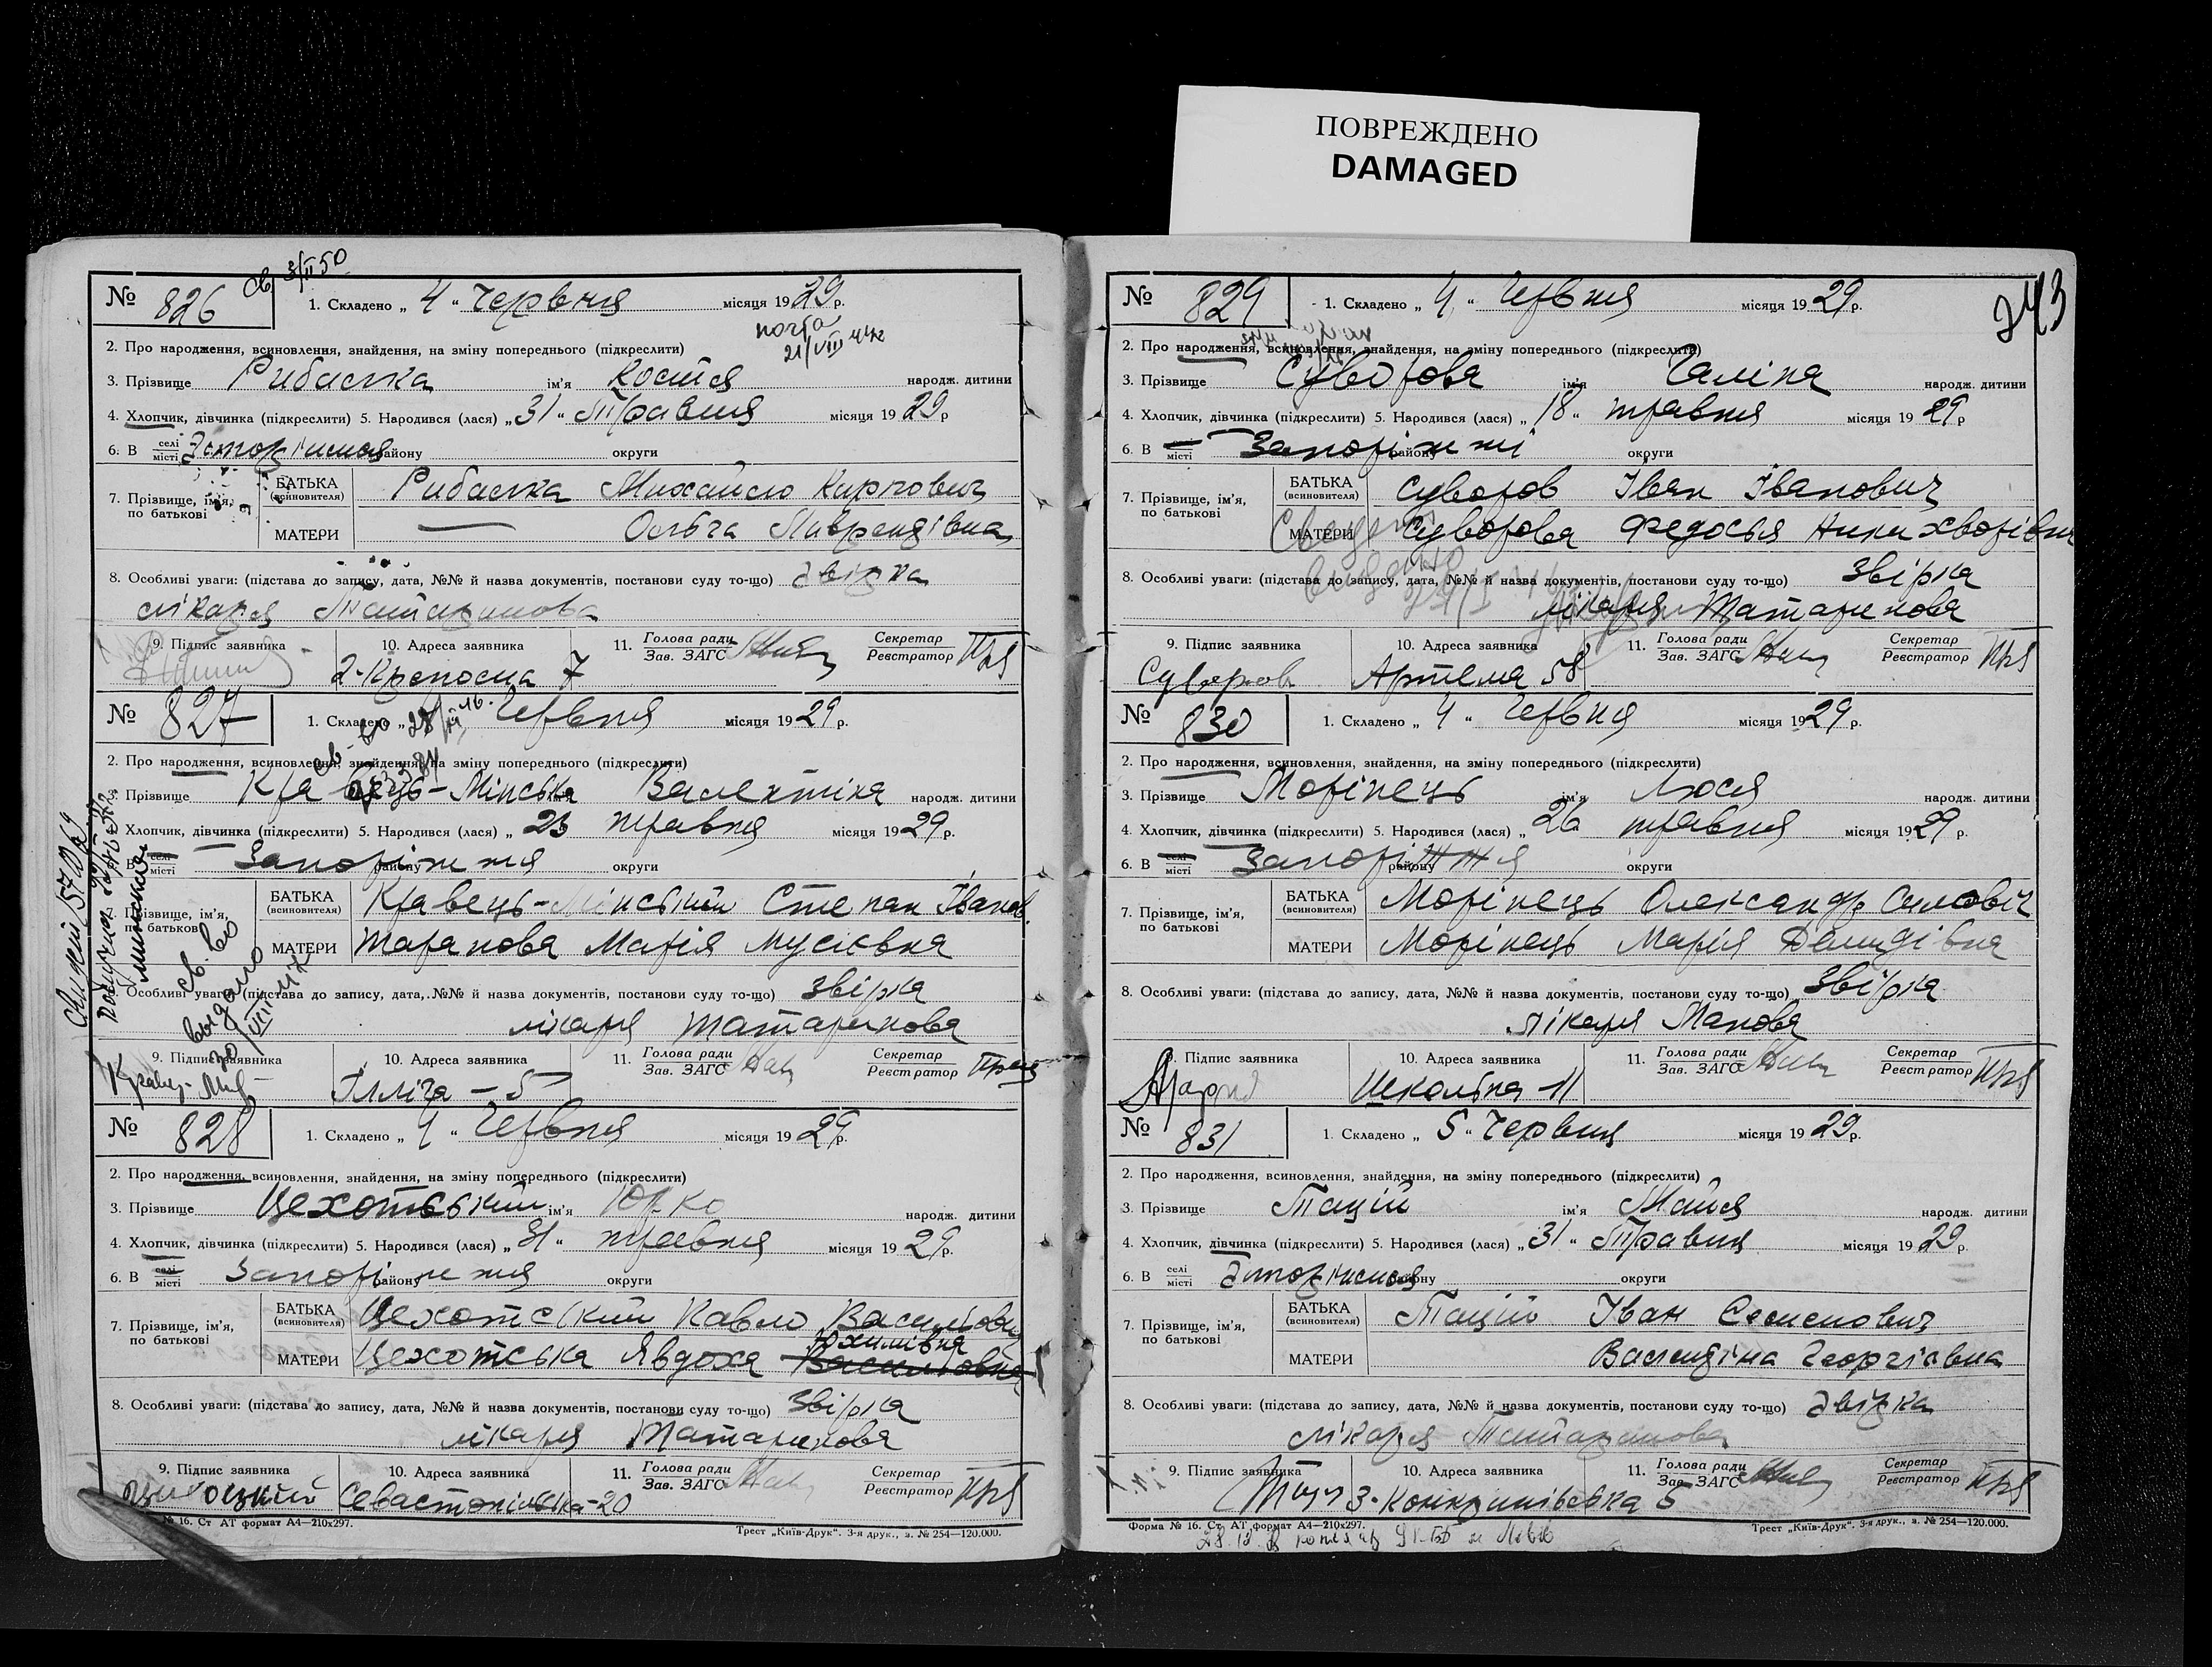 ПОВРЕЖДЕНО
DAMAGED
св 3/II 50
№ 826 1. Складено „ 4 “ Червня місяця 1929 р.
почта
21/VIII 44
2. Про народження, всиновлення, знайдення, на зміну попереднього (підкреслити)
3. Прізвище Рибалка ім'я Костя народж. дитини
4. Хлопчик, дівчинка (підкреслити) 5. Народився (лася) „ 31 “ Травня місяця 1929 р
6. В селі місті Запоріжжя району округи
7. Прізвище, ім'я, по батькові БАТЬКА (всиновителя) Рибалка Михайло Карпович
МАТЕРИ — Ольга Лаврендівна
8. Особливі уваги: (підстава до запису, дата, №№ й назва документів, постанови суду то-що) Звірка
лікаря Татаринова
9. Підпис заявника 10. Адреса заявника 11. Голова ради Зав. ЗАГС Секретар Реєстратор
2-Крепосна 7
№ 827 1. Складено „ Червня місяця 1929 р.
2. Про народження, всиновлення, знайдення, на зміну попереднього (підкреслити)
3. Прізвище Кравець-Мінська Валентіна народж. дитини
4. Хлопчик, дівчинка (підкреслити) 5. Народився (лася) „ 23 травня місяця 1929 р.
6. В селі місті Запоріжжя району округи
7. Прізвище, ім'я, по батькові БАТЬКА (всиновителя) Кравець-Мінський Степан Іванов.
МАТЕРИ Таранова Марія Мусієвна
св-во
выдано
30/VIII
8. Особливі уваги: (підстава до запису, дата, №№ й назва документів, постанови суду то-що) Звірка
лікаря Татаринова
9. Підпис заявника 10. Адреса заявника 11. Голова ради Зав. ЗАГС Секретар Реєстратор
Ілліча – 5
№ 828 1. Складено „ 4 “ Червня місяця 1929 р.
2. Про народження, всиновлення, знайдення, на зміну попереднього (підкреслити)
3. Прізвище Цехотський ім'я Юрко народж. дитини
4. Хлопчик, дівчинка (підкреслити) 5. Народився (лася) „ 31 “ травня місяця 1929 р.
6. В селі місті Запоріжжя району округи
7. Прізвище, ім'я, по батькові БАТЬКА (всиновителя) Цехотський Павло Васильович
Юхимівна
МАТЕРИ Цехотська Явдоха Васильовна
8. Особливі уваги: (підстава до запису, дата, №№ й назва документів, постанови суду то-що) Звірка
лікаря Татаринова
9. Підпис заявника 10. Адреса заявника 11. Голова ради Зав. ЗАГС Секретар Реєстратор
Севастопільська-20
№ 16. Ст АТ формат А4—210х297. Трест „Київ-Друк“. 3-я друк., з. № 254—120.000.
243
№ 829 1. Складено „ 4 “ Червня місяця 1929 р.
2. Про народження, всиновлення, знайдення, на зміну попереднього (підкреслити)
3. Прізвище Суворова ім'я Галіна народж. дитини
4. Хлопчик, дівчинка (підкреслити) 5. Народився (лася) „ 18 “ травня місяця 1929 р
6. В місті Запоріжжі району округи
7. Прізвище, ім'я, по батькові БАТЬКА (всиновителя) Суворов Іван Іванович
МАТЕРИ Суворова Федосья Никихворівна
8. Особливі уваги: (підстава до запису, дата, №№ й назва документів, постанови суду то-що) Звірка
лікаря Татаринова
9. Підпис заявника 10. Адреса заявника 11. Голова ради Зав. ЗАГС Секретар Реєстратор
Суворов Артема 58
№ 830 1. Складено „ 4 “ Червня місяця 1929 р.
2. Про народження, всиновлення, знайдення, на зміну попереднього (підкреслити)
3. Прізвище Морінець ім'я Люся народж. дитини
4. Хлопчик, дівчинка (підкреслити) 5. Народився (лася) „ 26 травня місяця 1929 р.
6. В селі місті Запоріжжя району округи
7. Прізвище, ім'я, по батькові БАТЬКА (всиновителя) Морінець Олександр Силовіч
МАТЕРИ Морінець Марія Демидівна
8. Особливі уваги: (підстава до запису, дата, №№ й назва документів, постанови суду то-що) Звірка
лікаря Манова
9. Підпис заявника 10. Адреса заявника 11. Голова ради Зав. ЗАГС Секретар Реєстратор
Школьна 11
№ 831 1. Складено „ 5 “ Червня місяця 1929 р.
2. Про народження, всиновлення, знайдення, на зміну попереднього (підкреслити)
3. Прізвище Тацій ім'я Майя народж. дитини
4. Хлопчик, дівчинка (підкреслити) 5. Народився (лася) „ 31 “ Травня місяця 1929 р.
6. В селі місті Запоріжжя району округи
7. Прізвище, ім'я, по батькові БАТЬКА (всиновителя) Тацій Іван Семенович
МАТЕРИ Валендіна Георгієвна
8. Особливі уваги: (підстава до запису, дата, №№ й назва документів, постанови суду то-що) Звірка
лікаря Татаринова
9. Підпис заявника 10. Адреса заявника 11. Голова ради Зав. ЗАГС Секретар Реєстратор
Форма № 16. Ст. АТ формат А4—210х297. Трест „Київ-Друк“. 3-я друк., з. № 254—120.000.